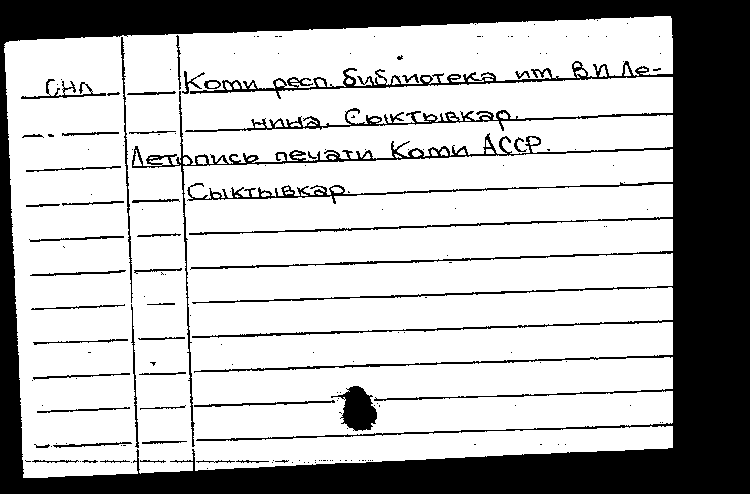 СНЛ Коми респ. библиотека им. В И Ле-
нина. Сыктывкар.
Летопись печати Коми АССР.
Сыктывкар.